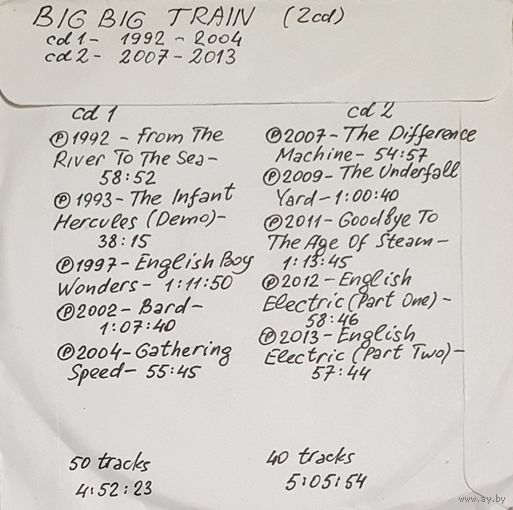 BIG BIG TRAIN (2cd)
cd 1 - 1992 - 2004
cd 2 - 2007 - 2013
cd 1
Ⓟ1992 - From The
River To The Sea -
58:52
Ⓟ1993 - The Infant
Hercules (Demo) -
38:15
Ⓟ1997 - English Boy
Wonders - 1:11:50
Ⓟ2002 - Bard -
1:07:40
Ⓟ2004 - Gathering
Speed - 55:45
50 tracks
4:52:23
cd 2
Ⓟ2007 - The Difference
Machine - 54:57
Ⓟ2009 - The Underfall
Yard - 1:00:40
Ⓟ2011 - Goodbye To
The Age Of Steam -
1:13:45
Ⓟ2012 - English
Electric (Part One) -
58:46
Ⓟ2013 - English
Electric (Part Two) -
57:44
40 tracks
5:05:54
www.ay.by